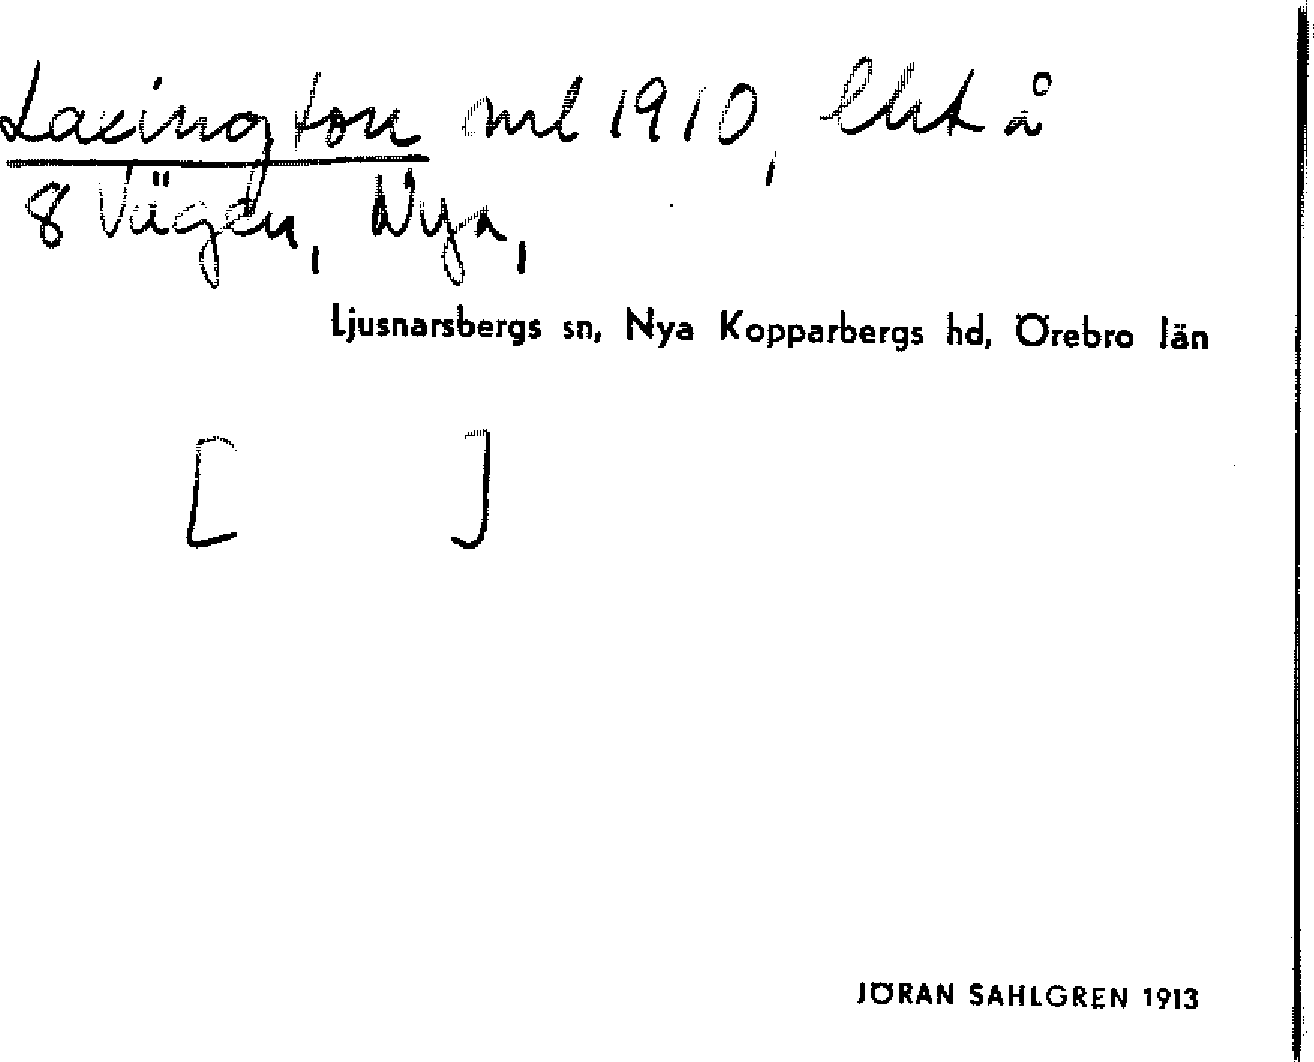 Laxington ml 1910, lht å
8 Vägen, Nya,
Ljusnarsbergs sn, Nya Kopparbergs hd, Örebro län
[ ]
JÖRAN SAHLGREN 1913